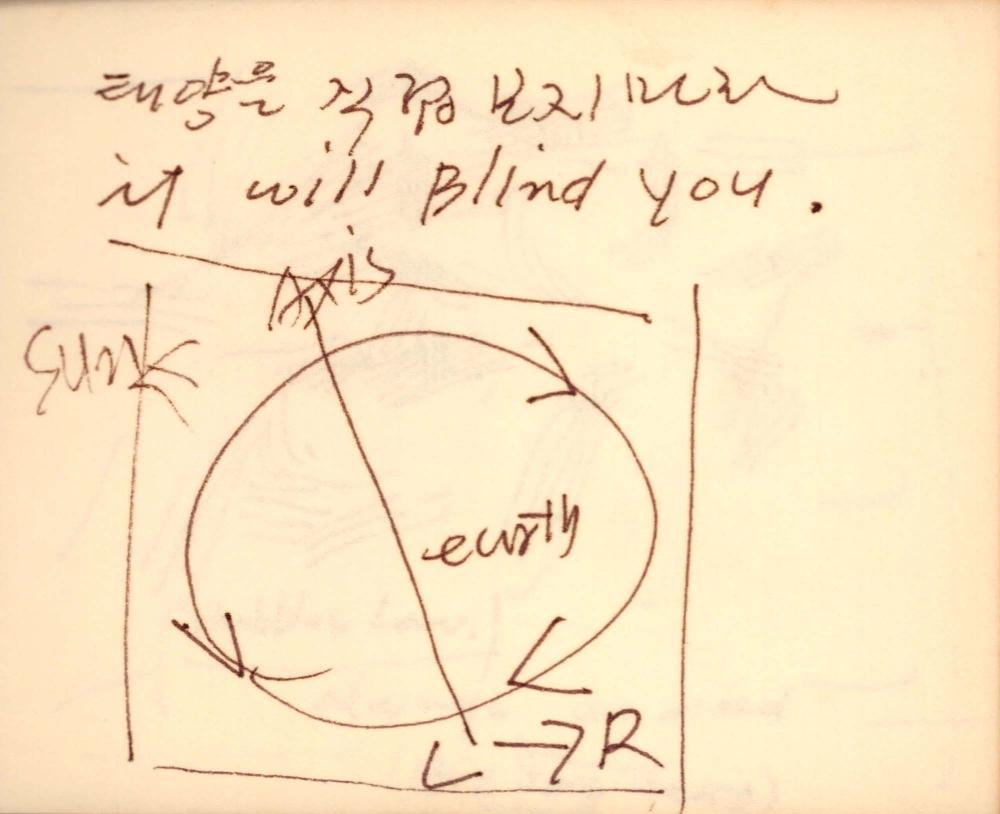 태양을 직접 보지 마라
it will Blind you.
Axis
Sun
earth
L → R